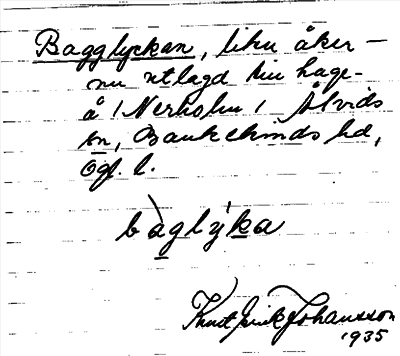 Bagglyckan, liten åker –
nu utlagd till hage
å 1 Nerholm 1 Åtvids
sn, Bankekinds hd,
Ögl. l.
bàglýka
Knut Erik Johansson
1935